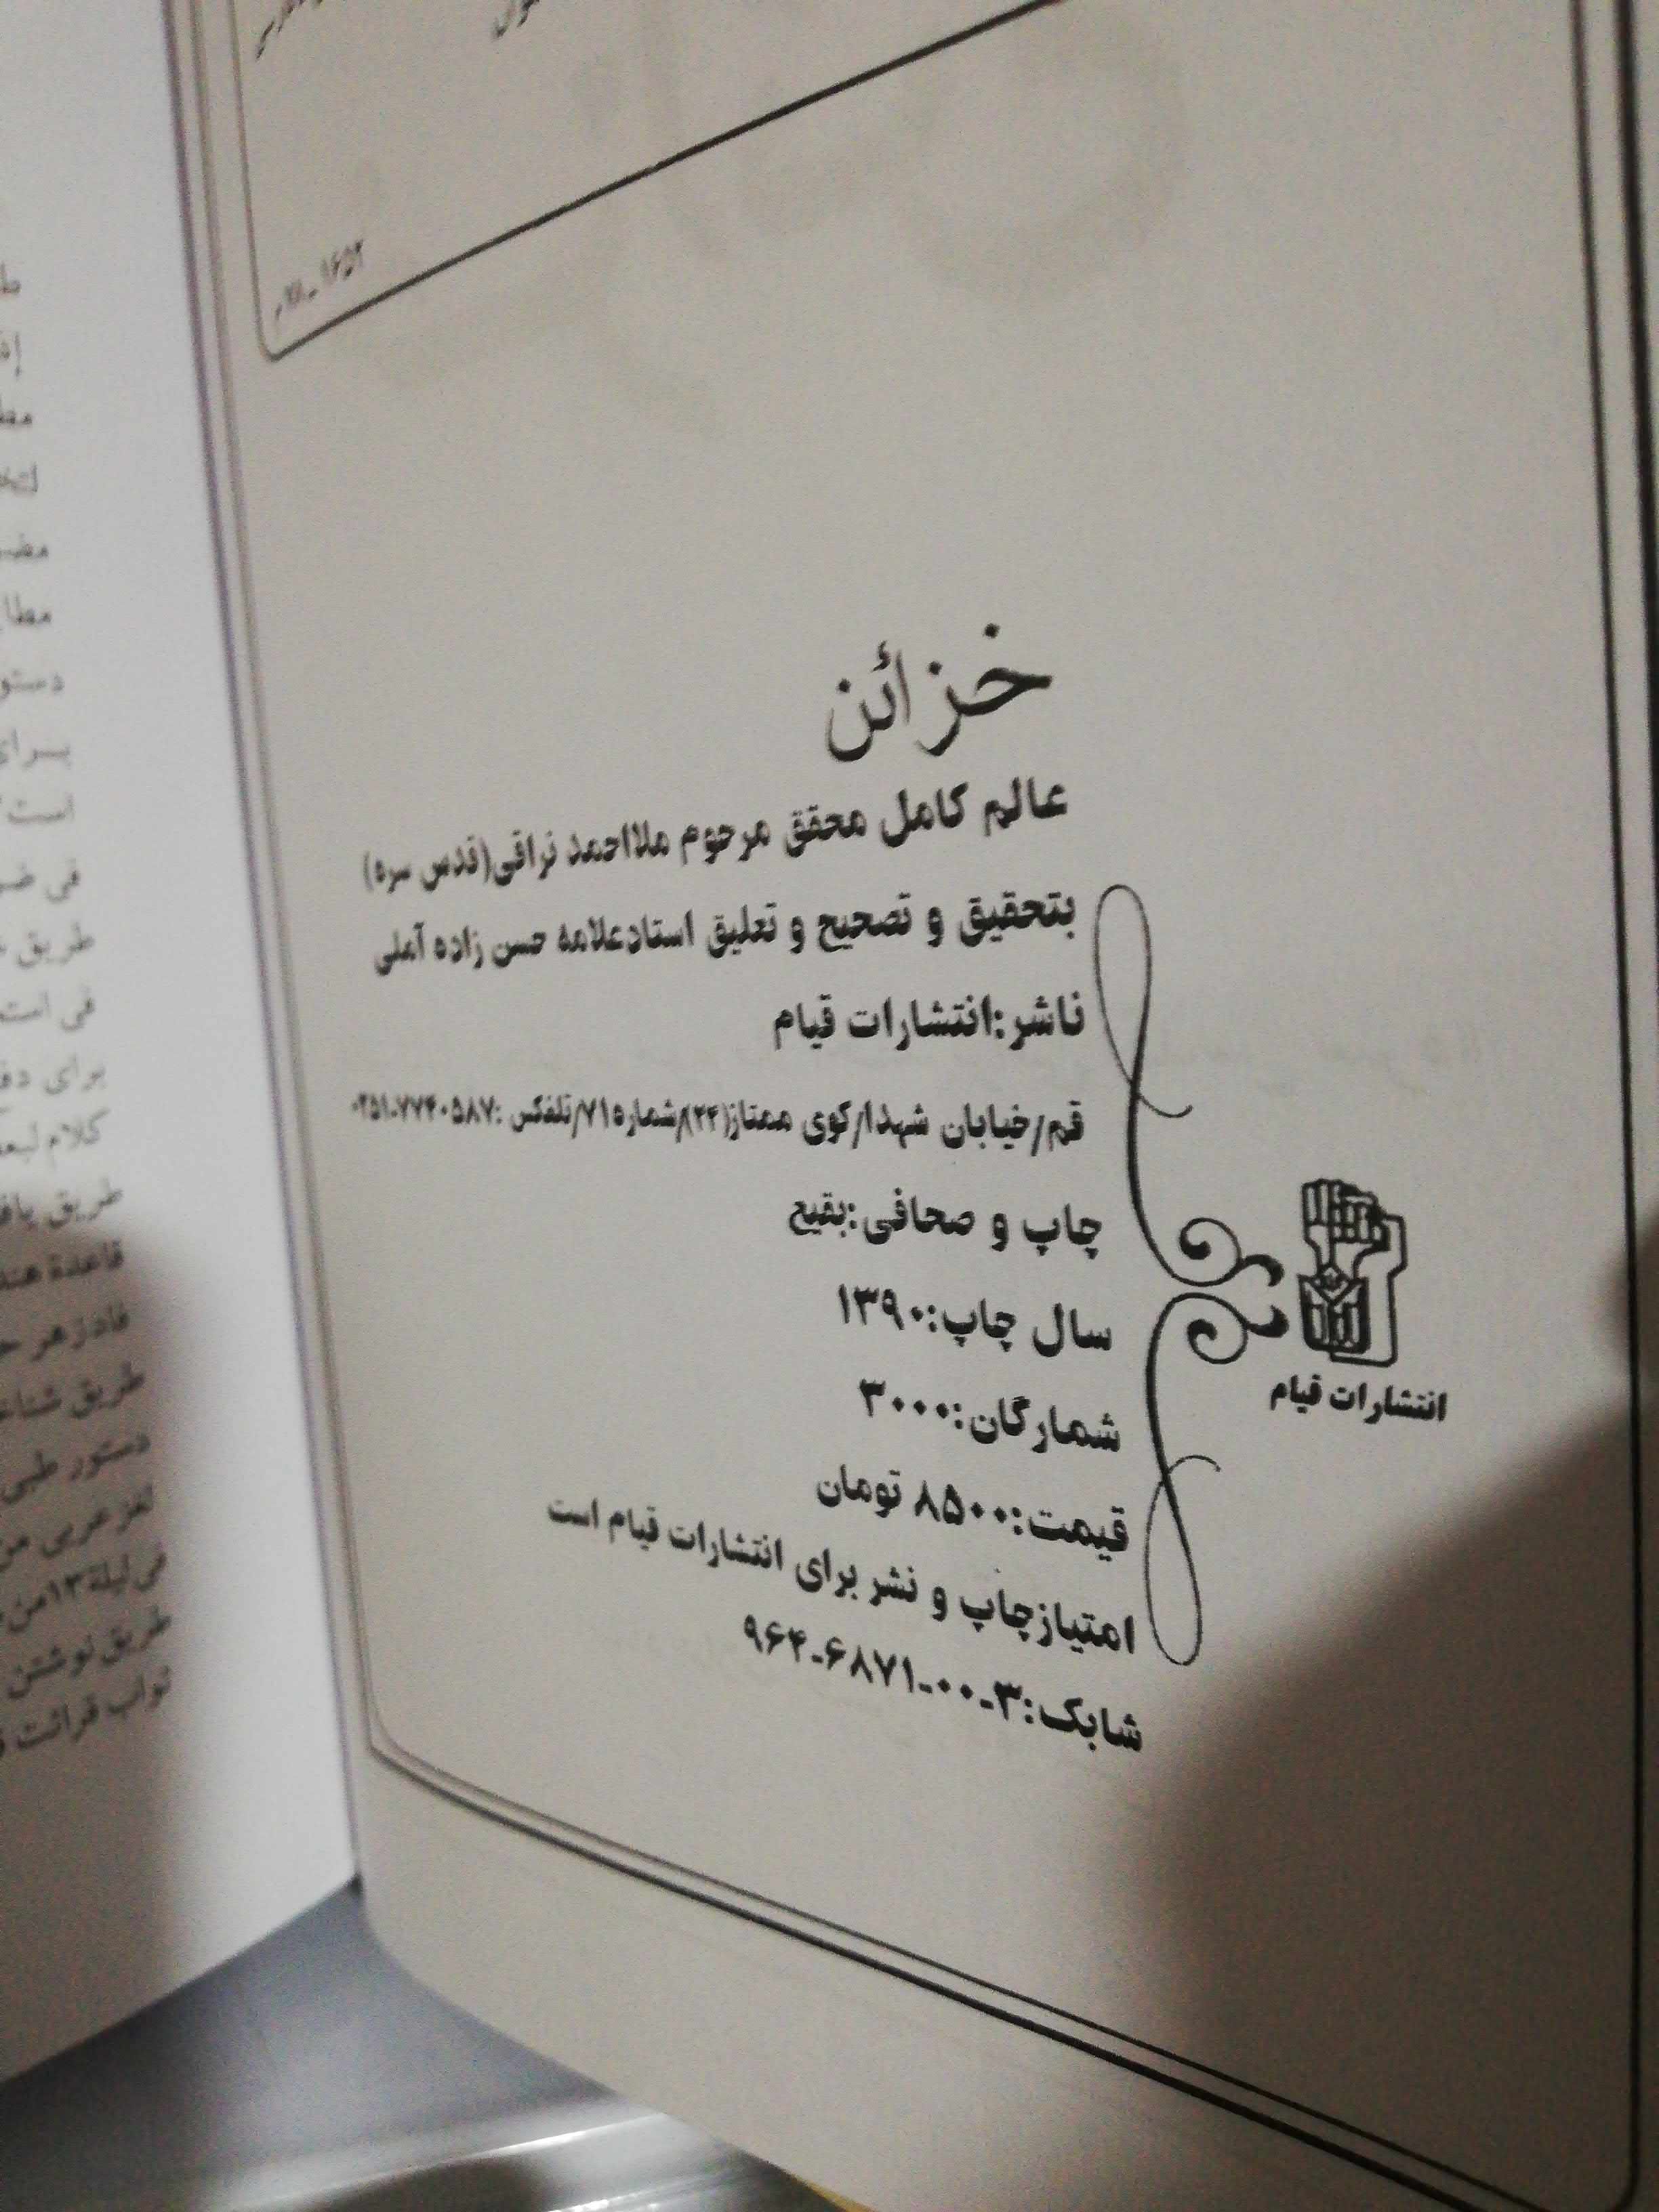 خزائن
عالم کامل محقق مرحوم ملااحمد نراقی(قدس سره)
بتحقیق و تصحیح و تعلیق استادعلامه حسن زاده آملی
ناشر:انتشارات قیام
قم/خیابان شهدا/کوی ممتاز(۲۴)/شماره۷۱/تلفکس :۷۷۴۰۵۸۷-۰۲۵۱
چاپ و صحافی:بقیع
سال چاپ:۱۳۹۰
شمارگان:۳۰۰۰
قیمت:۸۵۰۰ تومان
امتیازچاپ و نشر برای انتشارات قیام است
شابک:۳-۰۰-۶۸۷۱-۹۶۴
انتشارات قیام
مطا
دستو
برای
است
طریق
فی است
کلام لبعض
دستور طبی
لغز عربی من
فی لیلة۱۳من
طریق نوشتن
ثواب قرائت